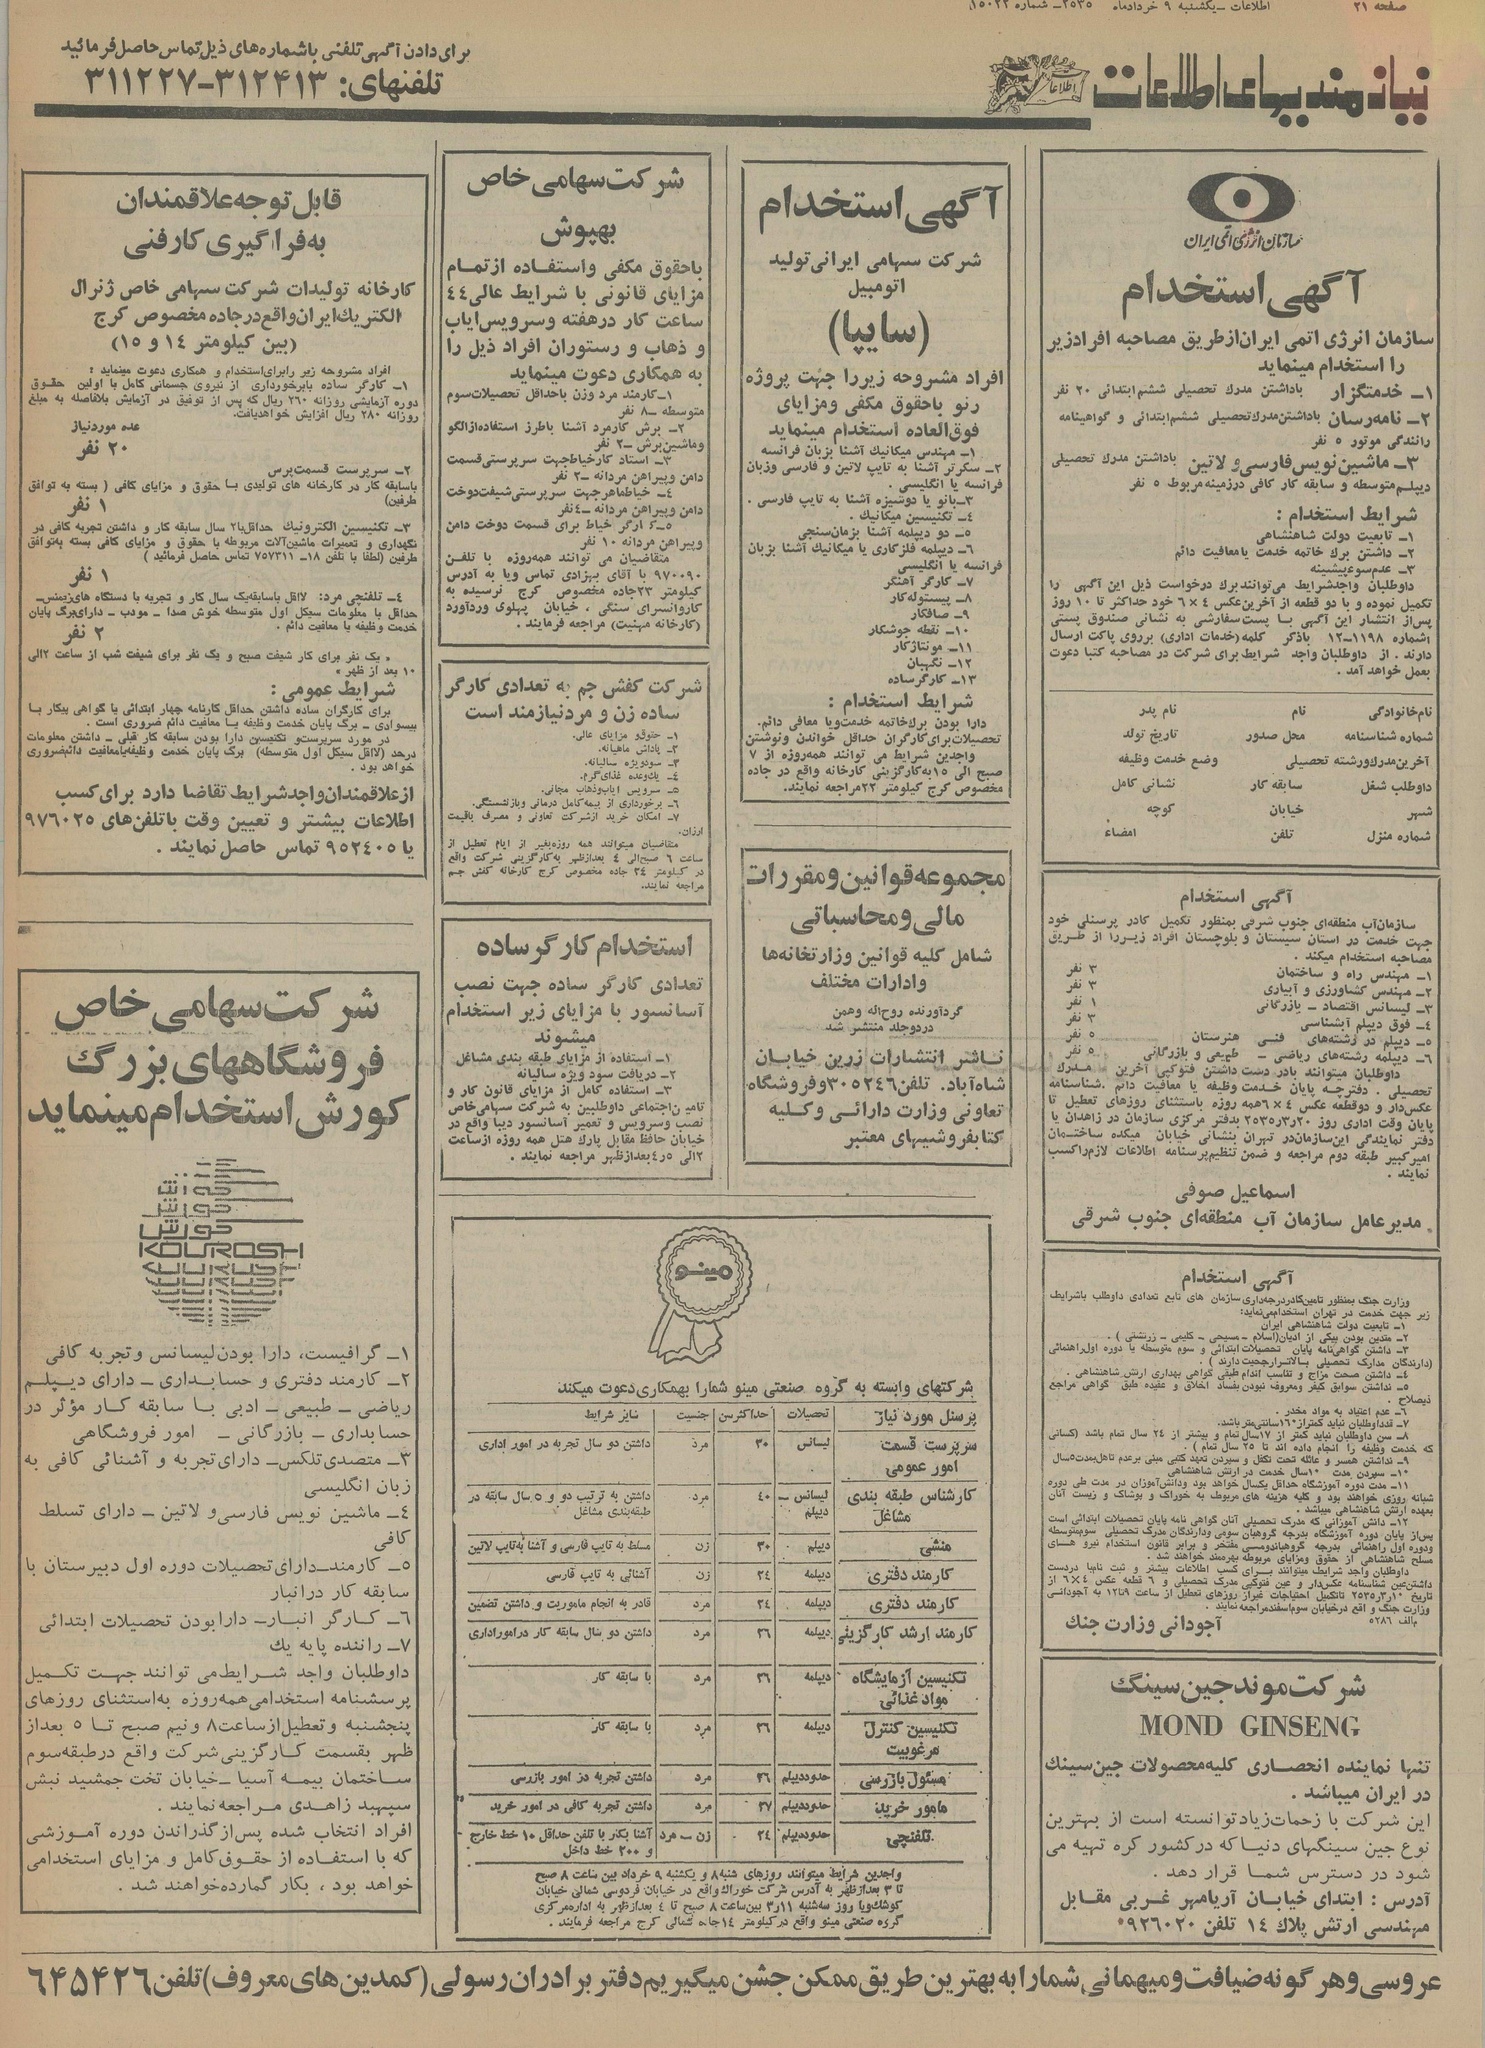 صفحه ۲۱
اطلاعات -یکشنبه ۹ خردادماه ۲۵۳۵- شماره ۱۵۰۲۲
نیازمندیهای اطلاعات
برای دادن آگهی تلفنی باشماره‌های ذیل تماس حاصل فرمائید
تلفنهای: ۳۱۲۴۱۳-۳۱۱۲۲۷
سازمان انرژی اتمی ایران
آگهی استخدام
سازمان انرژی اتمی ایران از طریق مصاحبه افراد زیر
را استخدام مینماید
۱ـ خدمتگزار باداشتن مدرك تحصیلی ششم‌ابتدائی ۲۰ نفر
۲ـ نامه‌رسان باداشتن مدرك‌تحصیلی ششم‌ابتدائی و گواهینامه
رانندگی موتور ۵ نفر
۳ـ ماشین‌نویس‌فارسی‌و لاتین باداشتن مدرك تحصیلی
دیپلم‌متوسطه و سابقه کار کافی درزمینه مربوط ۵ نفر
شرایط استخدام :
۱ـ تابعیت دولت شاهنشاهی
۲ـ داشتن برك خاتمه خدمت یا معافیت دائم
۳ـ عدم‌سوء‌پیشینه
داوطلبان واجدشرایط می‌توانند برك درخواست ذیل این آگهی را
تکمیل نموده و با دو قطعه از آخرین عکس ۴ × ۶ خود حداکثر تا ۱۰ روز
پس‌از انتشار این آگهی با پست سفارشی به نشانی صندوق پستی
شماره ۱۱۹۸-۱۲ باذکر کلمه (خدمات اداری) برروی پاکت ارسال
دارند . از داوطلبان واجد شرایط برای شرکت در مصاحبه کتبا دعوت
بعمل خواهد آمد .
نام‌خانوادگی نام نام پدر
شماره شناسنامه محل صدور تاریخ تولد
آخرین‌مدرك‌ورشته تحصیلی وضع خدمت وظیفه
داوطلب شغل سابقه کار نشانی کامل
شهر خیابان کوچه
شماره منزل تلفن امضاء
آگهی استخدام
سازمان‌آب منطقه‌ای جنوب شرقی بمنظور تکمیل کادر پرسنلی خود
جهت خدمت در استان سیستان و بلوچستان افراد زیررا از طریق
مصاحبه استخدام میکند .
۱ـ مهندس راه و ساختمان ۳ نفر
۲ـ مهندس کشاورزی و آبیاری ۳ نفر
۳ـ لیسانس اقتصاد ـ بازرگانی ۱ نفر
۴ـ فوق دیپلم آبشناسی ۳ نفر
۵ـ دیپلم در رشته‌های فنی هنرستان ۵ نفر
۶ـ دیپلمه رشته‌های ریاضی ـ طبیعی و بازرگانی ۵ نفر
داوطلبان میتوانند بادر دست داشتن فتوکپی آخرین مدرك
تحصیلی . دفترچه پایان خدمت وظیفه یا معافیت دائم .شناسنامه
عکس‌دار و دوقطعه عکس ۴×۶همه روزه باستثنای روزهای تعطیل تا
پایان وقت اداری روز ۲۰ر۳ر۲۵۳۵ بدفتر مرکزی سازمان در زاهدان یا
دفتر نمایندگی این‌سازمان‌در تهران بنشانی خیابان میکده ساختمان
امیرکبیر طبقه دوم مراجعه و ضمن تنظیم‌پرسنامه اطلاعات لازم‌راکسب
نمایند .
اسماعیل صوفی
مدیرعامل سازمان آب منطقه‌ای جنوب شرقی
آگهی استخدام
وزارت جنگ بمنظور تامین‌کادردرجه‌داری سازمان های تابع تعدادی داوطلب باشرایط
زیر جهت خدمت در تهران استخدام‌می‌نماید:
۱ـ تابعیت دولت شاهنشاهی ایران
۲ـ متدین بودن بیکی از ادیان(اسلام ـ مسیحی ـ کلیمی ـ زرتشتی ) .
۳ـ داشتن گواهی‌نامه پایان تحصیلات ابتدائی و سوم متوسطه یا دوره اول‌راهنمائی
(دارندگان مدارك تحصیلی بالاتررجحیت دارند ) .
۴ـ داشتن صحت مزاج و تناسب اندام طبقی گواهی بهداری ارتش شاهنشاهی .
۵ـ نداشتن سوابق کیفر ومعروف نبودن بفساد اخلاق و عقیده طبق گواهی مراجع
ذیصلاح .
۶ـ عدم اعتیاد به مواد مخدر .
۷ـ قدداوطلبان نباید کمتراز۱۶۰سانتی‌متر باشد.
۸ـ سن داوطلبان نباید کمتر از ۱۷سال تمام و بیشتر از ۲۴ سال تمام باشد (کسانی
که خدمت وظیفه را انجام داده اند تا ۲۵ سال تمام ) .
۹ـ نداشتن همسر و عائله تحت تکفل و سپردن تعهد کتبی مبنی برعدم تاهل‌بمدت۵سال
۱۰ـ سپردن مدت ۱۰سال خدمت در ارتش شاهنشاهی
۱۱ـ مدت دوره آموزشگاه حداقل یکسال خواهد بود ودانش‌آموزان در مدت طی دوره
شبانه روزی خواهند بود و کلیه هزینه های مربوط به خوراك و پوشاك و زیست آنان
بعهده ارتش شاهنشاهی میباشد .
۱۲ـ دانش آموزانی که مدرك تحصیلی آنان گواهی نامه پایان تحصیلات ابتدائی است
پس‌از پایان دوره آموزشگاه بدرجه گروهبان سومی ودارندگان مدرك تحصیلی سوم‌متوسطه
ودوره اول راهنمائی بدرجه گروهباندومسی مفتخر و برابر قانون استخدام نیرو های
مسلح شاهنشاهی از حقوق ومزایای مربوطه بهره‌مند خواهند شد .
داوطلبان واجد شرایط میتوانند برای کسب اطلاعات بیشتر و ثبت نام‌با دردست
داشتن‌عین شناسنامه عکس‌دار و عین فتوکپی مدرك تحصیلی و ۶ قطعه عکس ۴×۶ از
تاریخ ۱۰ر۳ر۲۵۳۵ تاتکمیل احتیاجات غیراز روزهای تعطیل از ساعت ۹تا۱۲ به آجودانی
وزارت جنگ و اقع درخیابان سوم‌اسفندمراجعه نمایند .
م‌الف ۵۲۸۶ آجودانی وزارت جنك
شرکت موند جین سینگ
MOND GINSENG
تنها نماینده انحصاری کلیه محصولات جین‌سینك
در ایران میباشد .
این شرکت با زحمات‌زیاد توانسته است از بهترین
نوع جین سینگهای دنیاکه درکشور کره تهیه می
شود در دسترس شما قرار دهد .
آدرس : ابتدای خیابان آریامهر غربی مقابل
مهندسی ارتش پلاك ۱۴ تلفن ۹۲۶۰۲۰
آگهی استخدام
شرکت سهامی ایرانی تولید
اتومبیل
(سایپا)
افراد مشروحه زیررا جهت پروژه
رنو باحقوق مکفی ومزایای
فوق‌العاده استخدام مینماید
۱ـ مهندس میکانیك آشنا بزبان فرانسه
۲ـ سکرتر آشنا به تایپ لاتین و فارسی وزبان
فرانسه یا انگلیسی .
۳ـ بانو یا دوشیزه آشنا به تایپ فارسی .
۴ـ تکنیسین میکانیك .
۵ـ دو دیپلمه آشنا بزمان‌سنجی
۶ـ دیپلمه فلزکاری یا میکانیك آشنا بزبان
فرانسه یا انگلیسی
۷ـ کارگر آهنگر
۸ـ پیستوله‌کار
۹ـ صافکار
۱۰ـ نقطه جوشکار
۱۱ـ مونتاژکار
۱۲ـ نگهبان
۱۳ـ کارگرساده
شرایط استخدام :
دارا بودن برك‌خاتمه خدمت‌ویا معافی دائم.
تحصیلات‌برای‌کارگران حداقل خواندن ونوشتن
واجدین شرایط می توانند همه‌روزه از ۷
صبح الی ۱۵به‌کارگزینی کارخانه واقع در جاده
مخصوص کرج کیلومتر ۲۲مراجعه نمایند.
مجموعه‌قوانین‌ومقررات
مالی‌و‌محاسباتی
شامل کلیه قوانین وزارتخانه‌ها
وادارات مختلف
گردآورنده روح‌اله وهمن
دردوجلد منتشر شد
ناشر انتشارات زرین خیابان
شاه‌آباد. تلفن۳۰۵۲۴۶وفروشگاه
تعاونی وزارت دارائی و کلیه
کتابفروشیهای معتبر
شرکت سهامی خاص
بهپوش
باحقوق مکفی واستفاده ازتمام
مزایای قانونی با شرایط عالی۴۴
ساعت کار درهفته وسرویس‌ایاب
و ذهاب و رستوران افراد ذیل را
به همکاری دعوت مینماید
۱ـ کارمند مرد وزن باحداقل تحصیلات‌سوم
متوسطه ـ۸ نفر
۲ـ برش کارمرد آشنا باطرز استفاده‌ازالگو
وماشین‌برش ـ۲ نفر
۳ـ استاد کارخیاط‌جهت سرپرستی‌قسمت
دامن وپیراهن مردانه ـ۲ نفر
۴ـ خیاط‌ماهرجهت سرپرستی‌شیفت‌دوخت
دامن وپیراهن مردانه ـ۴نفر
۵ـ کارگر خیاط برای قسمت دوخت دامن
وپیراهن مردانه ۱۰ نفر
متقاضیان می توانند همه‌روزه با تلفن
۹۷۰۰۹۰ با آقای بهزادی تماس ویا به آدرس
کیلومتر ۲۳جاده مخصوص کرج نرسیده به
کاروانسرای سنگی ، خیابان پهلوی وردآورد
(کارخانه مهنیت) مراجعه فرمایند .
شرکت کفش جم به تعدادی کارگر
ساده زن و مردنیازمند است
۱ـ حقوق‌و مزایای عالی.
۲ـ پاداش ماهیانه.
۳ـ سودویژه سالیانه.
۴ـ یك‌وعده غذای‌گرم.
۵ـ سرویس ایاب‌وذهاب مجانی.
۶ـ برخورداری از بیمه‌کامل درمانی وبازنشستگی.
۷ـ امکان خرید ازشرکت تعاونی و مصرف باقیمت
ارزان.
متقاضیان میتوانند همه روزه‌بغیر از ایام تعطیل از
ساعت ۶ صبح‌الی ۴ بعدازظهر به‌کارگزینی شرکت واقع
در کیلومتر ۲۴ جاده مخصوص کرج کارخانه کفش جم
مراجعه نمایند.
استخدام کارگر ساده
تعدادی کارگر ساده جهت نصب
آسانسور با مزایای زیر استخدام
میشوند
۱ـ استفاده از مزایای طبقه بندی مشاغل
۲ـ دریافت سود ویژه سالیانه
۳ـ استفاده کامل از مزایای قانون کار و
تامین‌اجتماعی داوطلبین به شرکت سهامی‌خاص
نصب وسرویس و تعمیر آسانسور دیبا واقع در
خیابان حافظ مقابل پارك هتل همه روزه ازساعت
۲الی ۴ر۵بعدازظهر مراجعه نمایند .
مینو
شرکتهای وابسته به گروه صنعتی مینو شمارا بهمکاری‌دعوت میکند
پرسنل مورد نیاز تحصیلات حداکثرسن جنسیت سایر شرایط
سرپرست قسمت امور عمومی لیسانس ۳۰ مرد داشتن دو سال تجربه در امور اداری
کارشناس طبقه بندی مشاغل لیسانس ـ دیپلم ۴۰ مرد داشتن به ترتیب دو و ۵ سال سابقه در طبقه‌بندی مشاغل
منشی دیپلم ۳۰ زن مسلط به تایپ فارسی و آشنا به‌تایپ لاتین
کارمند دفتری دیپلمه ۲۴ زن آشنائی به تایپ فارسی
کارمند دفتری دیپلمه ۲۴ مرد قادر به انجام ماموریت و داشتن تضمین
کارمند ارشد کارگزینی دیپلمه ۲۶ مرد داشتن دو سال سابقه کار درامور‌اداری
تکنیسین آزمایشگاه مواد غذائی دیپلمه ۲۶ مرد با سابقه کار
تکنیسین کنترل مرغوبیت دیپلمه ۲۶ مرد با سابقه کار
مسئول بازرسی حدوددیپلم ۲۶ مرد داشتن تجربه در امور بازرسی
مامور خرید حدوددیپلم ۲۷ مرد داشتن تجربه کافی در امور خرید
تلفنچی حدوددیپلم ۲۴ زن ـ مرد آشنا بکار با تلفن حداقل ۱۰ خط خارج و ۲۰۰ خط داخل
واجدین شرایط میتوانند روزهای شنبه۸ و یکشنبه ۹ خرداد بین ساعت ۸ صبح
تا ۳ بعدازظهر به آدرس شرکت خوراك‌واقع در خیابان فردوسی شمالی خیابان
کوشك‌ویا روز سه‌شنبه ۱۱ر۳ بین‌ساعت ۸ صبح تا ۴ بعدازظهر به اداره‌مرکزی
گروه صنعتی مینو واقع درکیلومتر ۱۴جاده شمالی کرج مراجعه فرمایند .
قابل توجه علاقمندان
به‌فراگیری کارفنی
کارخانه تولیدات شرکت سهامی خاص ژنرال
الکتریك‌ایران‌واقع‌درجاده مخصوص کرج
(بین کیلومتر ۱۴ و ۱۵)
افراد مشروحه زیر رابرای‌استخدام و همکاری دعوت مینماید :
۱ـ کارگر ساده بابرخورداری از نیروی جسمانی کامل با اولین حقوق
دوره آزمایشی روزانه ۲۶۰ ریال‌که پس از توفیق در آزمایش بلافاصله به مبلغ
روزانه ۲۸۰ ریال افزایش خواهدیافت.
عده موردنیاز
۲۰ نفر
۲ـ سرپرست قسمت‌پرس
باسابقه کار در کارخانه های تولیدی با حقوق و مزایای کافی ( بسته به توافق
طرفین)
۱ نفر
۳ـ تکنیسین الکترونیك حداقل‌با۲ سال سابقه کار و داشتن تجربه کافی در
نگهداری و تعمیرات ماشین‌آلات مربوطه با حقوق و مزایای کافی بسته به‌توافق
طرفین (لطفا با تلفن ۱۸ـ ۷۵۷۳۱۱ تماس حاصل فرمائید )
۱ نفر
۴ـ تلفنچی مرد: لااقل باسابقه‌یك سال کار و تجربه با دستگاه های‌زیمنس ـ
حداقل با معلومات سیکل اول متوسطه خوش صدا ـ مودب ـ دارای‌برگ پایان
خدمت وظیفه یا معافیت دائم .
۲ نفر
« یک نفر برای کار شیفت صبح و یک نفر برای شیفت شب از ساعت ۲الی
۱۰ بعد از ظهر »
شرایط عمومی :
برای کارگران ساده داشتن حداقل کارنامه چهار ابتدائی یا گواهی پیکار با
بیسوادی ـ برگ پایان خدمت وظیفه یا معافیت دائم ضروری است .
در مورد سرپرست‌و تکنیسین دارا بودن سابقه کار قبلی ـ داشتن معلومات
درحد (لااقل سیکل اول متوسطه) برگ پایان خدمت وظیفه‌یامعافیت دائم‌ضروری
خواهد بود .
ازعلاقمندان‌واجدشرایط تقاضا دارد برای‌کسب
اطلاعات بیشتر و تعیین وقت باتلفن‌های ۹۷۶۰۲۵
یا ۹۵۲۴۰۵ تماس حاصل نمایند .
شرکت سهامی خاص
فروشگاههای بزرگ
کورش استخدام مینماید
کورش
کورش
کورش
KOUROSH
۱ـ گرافیست، دارا بودن لیسانس و تجربه کافی
۲ـ کارمند دفتری و حسابداری ـ دارای دیپلم
ریاضی ـ طبیعی ـ ادبی با سابقه کار مؤثر در
حسابداری ـ بازرگانی ـ امور فروشگاهی
۳ـ متصدی‌تلکس ـ دارای تجربه و آشنائی کافی به
زبان انگلیسی
۴ـ ماشین نویس فارسی و لاتین ـ دارای تسلط
کافی
۵ـ کارمند ـ دارای‌تحصیلات دوره اول دبیرستان با
سابقه کار درانبار
۶ـ کارگر انبار ـ دارابودن تحصیلات ابتدائی
۷ـ راننده پایه یك
داوطلبان واجد شرایط‌می توانند جهت تکمیل
پرسشنامه استخدامی همه‌روزه به‌استثنای روزهای
پنجشنبه و تعطیل‌از ساعت ۸ و نیم صبح تا ۵ بعداز
ظهر بقسمت کارگزینی شرکت واقع درطبقه‌سوم
ساختمان بیمه آسیا ـ خیابان تخت جمشید نبش
سپهبد زاهدی مراجعه نمایند .
افراد انتخاب شده پس‌از گذراندن دوره آموزشی
که با استفاده از حقوق‌کامل و مزایای استخدامی
خواهد بود ، بکار گمارده خواهند شد .
عروسی و هر گونه ضیافت و میهمانی شمارا به بهترین طریق ممکن جشن میگیریم دفتر برادران رسولی (کمدین های معروف) تلفن ۶۴۵۴۲۶